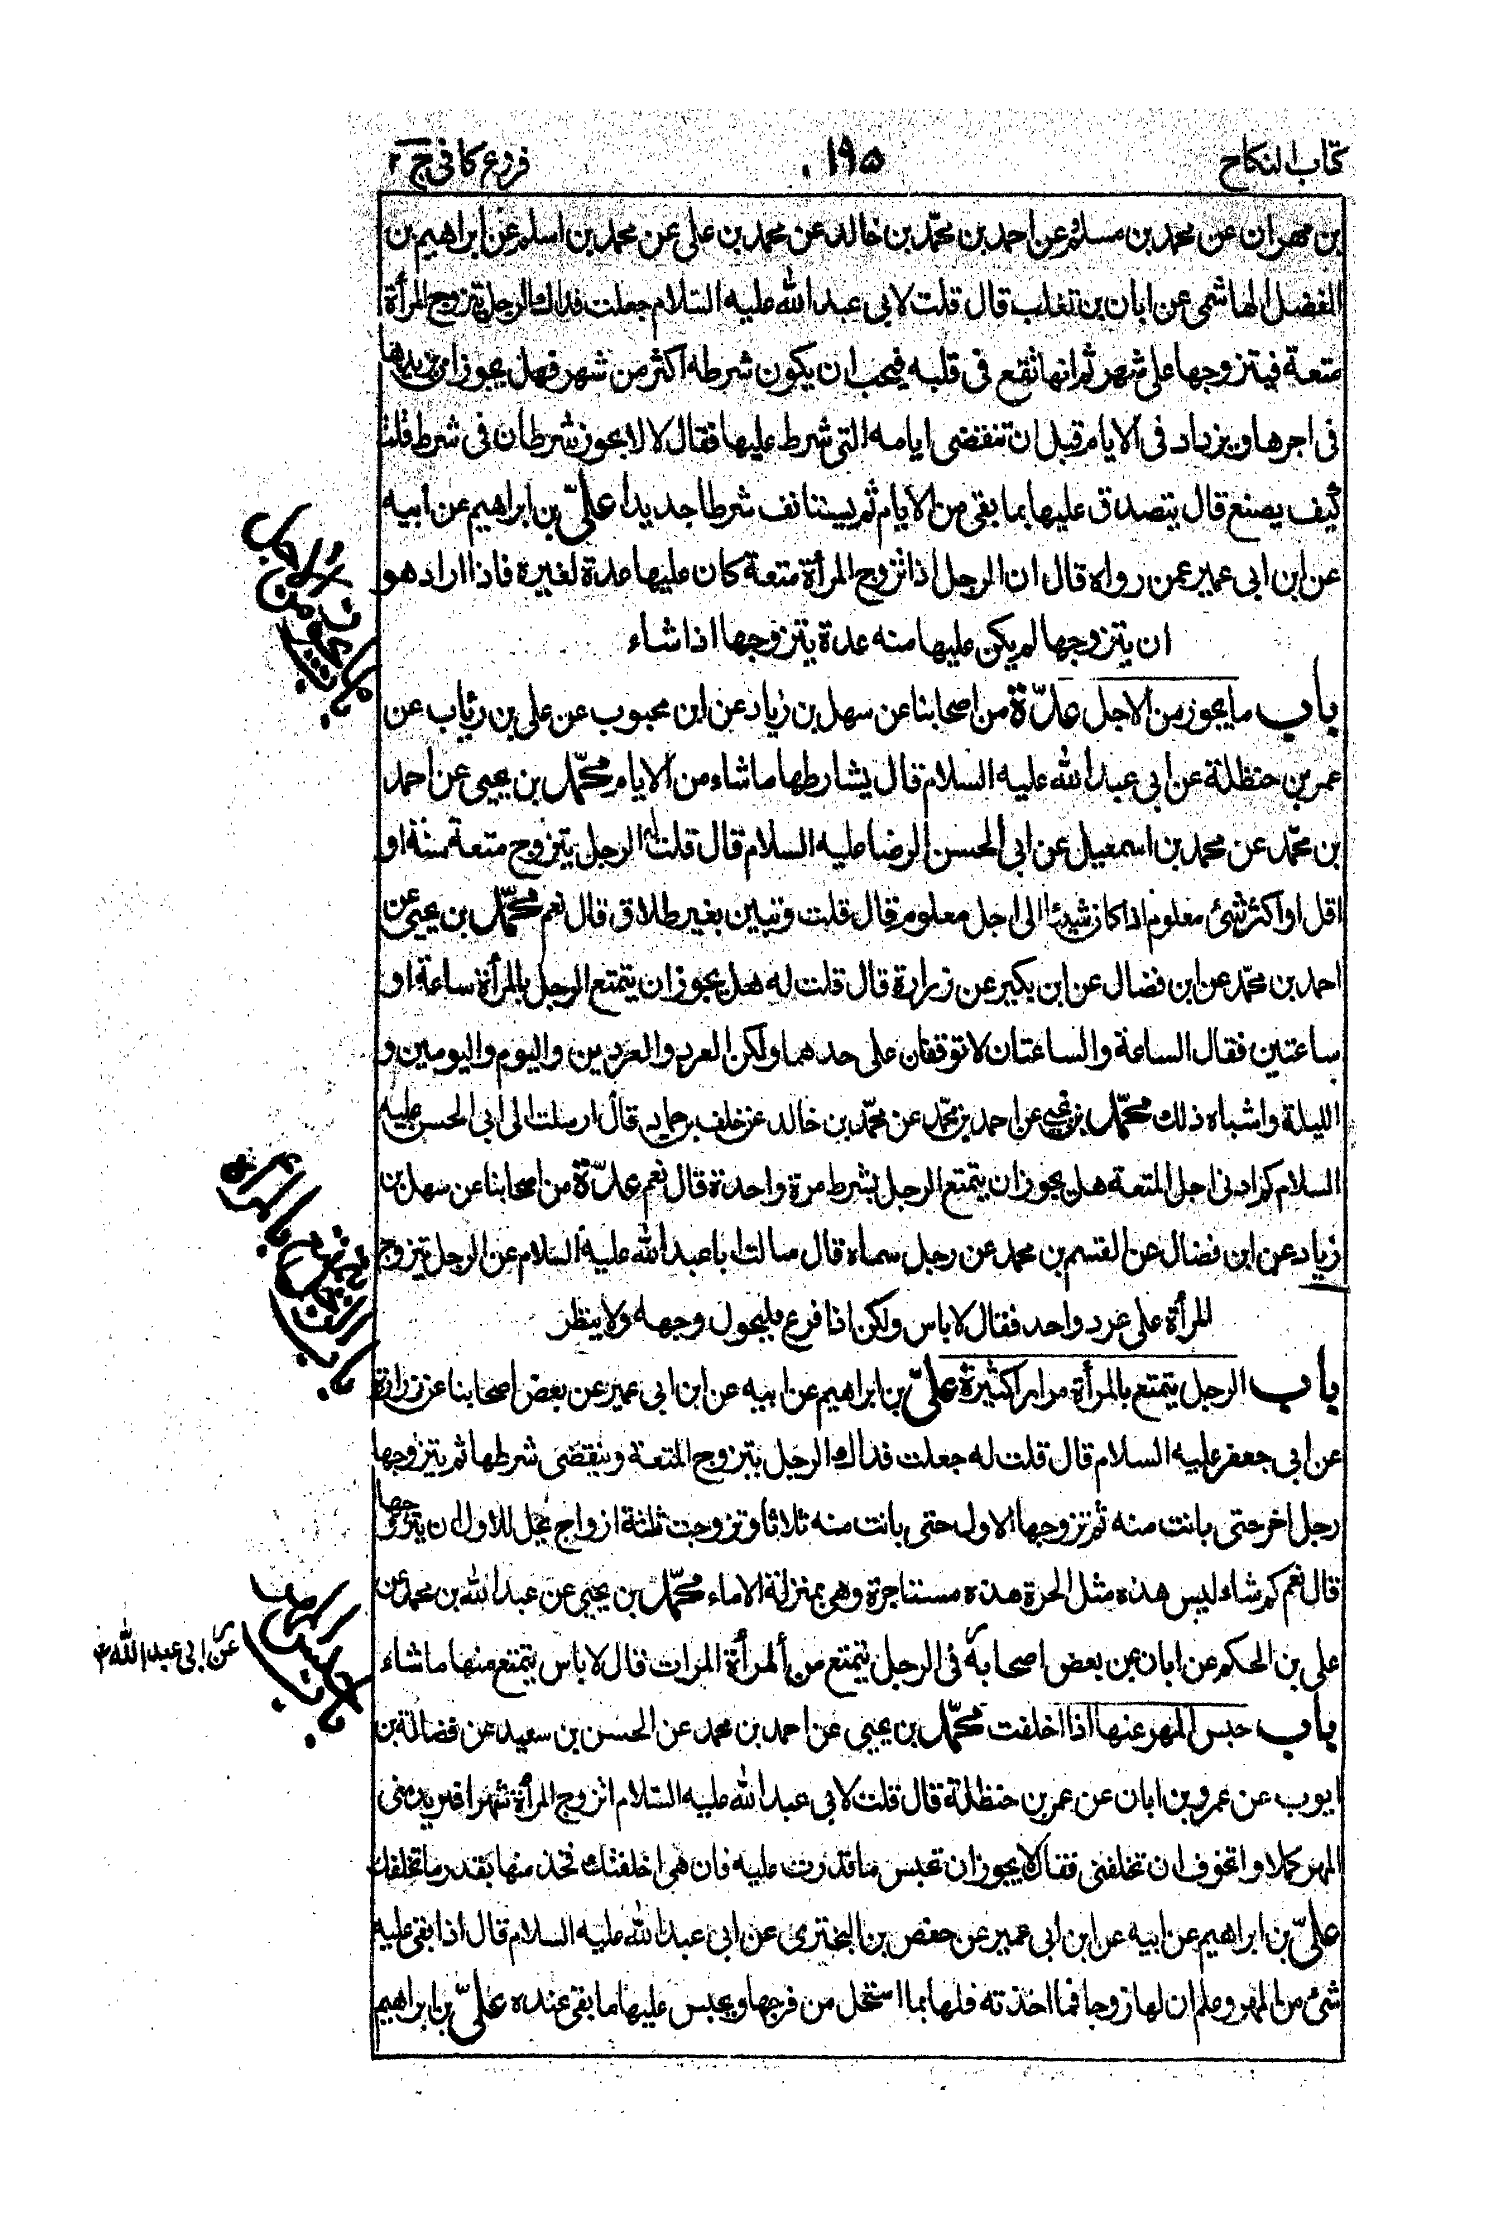 كتاب النكاح
١٩٥
فروع كافى ج ٢
بن مهران عن محمد بن مسلم عن احمد بن محمد بن خالد عن محمد بن على عن محمد بن اسلم عن ابراهيم بن
الفضل الهاشمى عن ابان بن تغلب قال قلت لابى عبد الله عليه السلام جعلت فداك الرجل يتزوج المرأة
متعة فيتزوجها على شهر ثم انها تقع فى قلبه فيحب ان يكون شرطه اكثر من شهر فهل يجوز ان يزيدها
فى اجرها ويزداد فى الايام قبل ان تنقضى ايامه التى شرط عليها فقال لا لا يجوز شرطان فى شرط قلت
كيف يصنع قال يتصدق عليها بما بقى من الايام ثم يستانف شرطا جديدا على بن ابراهيم عن ابيه
عن ابن ابى عمير عمن رواه قال ان الرجل اذا تزوج المرأة متعة كان عليها عدة لغيره فاذا اراد هو
ان يتزوجها لم يكن عليها منه عدة يتزوجها اذا شاء
باب ما يجوز من الاجل عدّة من اصحابنا عن سهل بن زياد عن ابن محبوب عن على بن رئاب عن
عمر بن حنظلة عن ابى عبد الله عليه السلام قال يشارطها ما شاء من الايام محمّد بن يحيى عن احمد
بن محمّد عن محمد بن اسمعيل عن ابى الحسن الرضا عليه السلام قال قلت له الرجل يتزوج متعة سنة او
اقل او اكثر شئ معلوم اذا كان شيئا الى اجل معلوم قال قلت وتبين بغير طلاق قال نعم محمّد بن يحيى عن
احمد بن محمّد عن ابن فضال عن ابن بكير عن زرارة قال قلت له هل يجوز ان يتمتع الرجل بالمرأة ساعة او
ساعتين فقال الساعة والساعتان لا توقفان على حدهما ولكن العرد والعردين واليوم واليومين و
الليلة واشباه ذلك محمّد بن يحيى عن احمد بن محمّد عن محمّد بن خالد عن خلف بن حماد قال ارسلت الى ابى الحسن عليه
السلام كم ادنى اجل المتعة هل يجوز ان يتمتع الرجل بشرط مرة واحدة قال نعم عدّة من اصحابنا عن سهل بن
زياد عن ابن فضال عن القسم بن محمد عن رجل سماه قال سالت ابا عبد الله عليه السلام عن الرجل يتزوج
المرأة على عرد واحد فقال لا باس ولكن اذا فرغ فليحول وجهه ولا ينظر
باب الرجل يتمتع بالمرأة مرارا كثيرة علىّ بن ابراهيم عن ابيه عن ابن ابى عمير عن بعض اصحابنا عن زرارة
عن ابى جعفر عليه السلام قال قلت له جعلت فداك الرجل يتزوج المتعة وينقضى شرطها ثم يتزوجها
رجل اخر حتى بانت منه ثم تزوجها الاول حتى بانت منه ثلاثا وتزوجت ثلثة ازواج يحل للاول ان يتزوجها
قال نعم كم شاء ليس هذه مثل الحرة هذه مستاجرة وهى بمنزلة الاماء محمّد بن يحيى عن عبد الله بن محمد عن
على بن الحكم عن ابان عن بعض اصحابه فى الرجل يتمتع من المرأة المرات قال لا باس يتمتع منها ما شاء
باب حبس المهر عنها اذا اخلفت محمّد بن يحيى عن احمد بن محمد عن الحسن بن سعيد عن فضالة بن
ايوب عن عمرو بن ابان عن عمر بن حنظلة قال قلت لابى عبد الله عليه السلام اتزوج المرأة شهرا فتريد منى
المهر كملا واتخوف ان تخلفنى فقال لا يجوز ان تحبس ما قدرت عليه فان هى اخلفتك فخذ منها بقدر ما تخلفك
علىّ بن ابراهيم عن ابيه عن ابن ابى عمير عن حفص بن البخترى عن ابى عبد الله عليه السلام قال اذا بقى عليه
شئ من المهر وعلم ان لها زوجا فما اخذته فلها بما استحل من فرجها ويحبس عليها ما بقى عنده علىّ بن ابراهيم
باب ما يجوز من الاجل
باب الرجل يتمتع بالمرأة
باب حبس المهر
عن ابى عبد الله ع